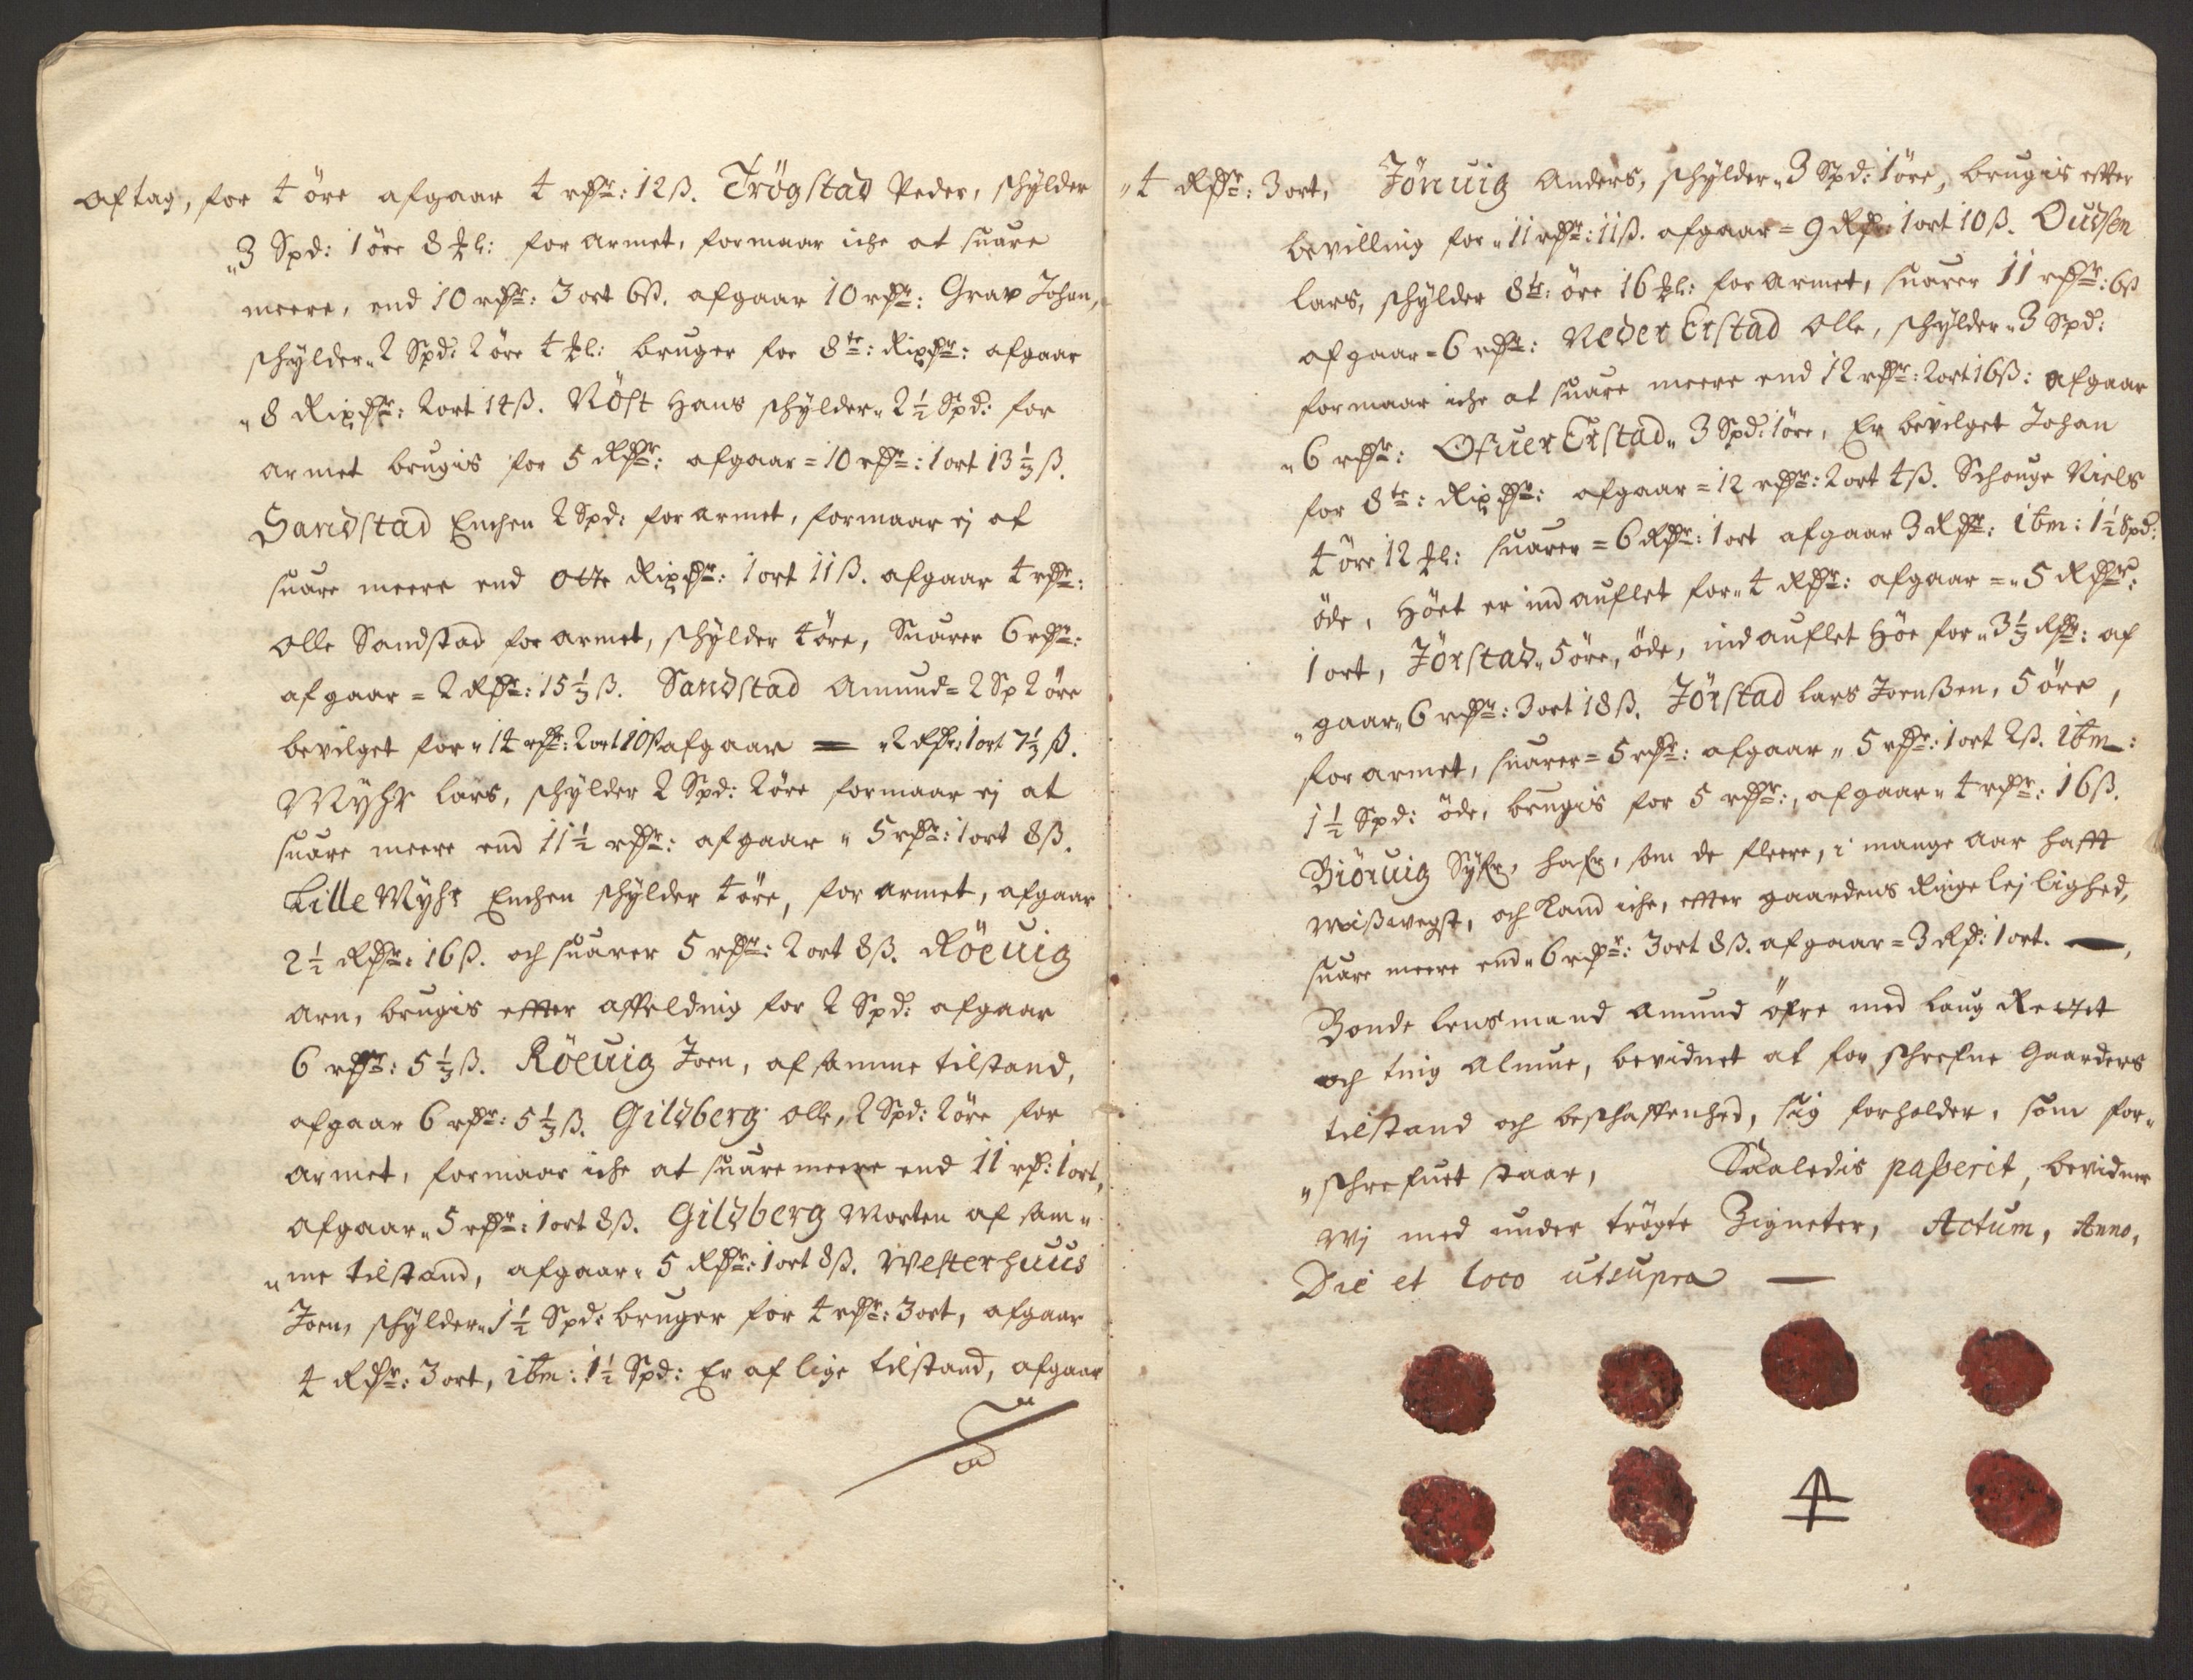 aftag, for 4 öre afgaar 4 rdr: 12ß. Trögstad Peder, schylder
„3 Spd: 1 öre 8 : for armet, formaar iche at suare
meere, end 10 rdr: 3 ort 6ß. afgaar 10 rdr: Grav Johan,
schylder„ 2 Spd: 2 öre 4 : bruger for 8te: Rixdr: afgaar
„8 Rixdr: 2ort 14ß. Röst Hans schylder„ 2½ Spd: for
armet brugis for 5 Rdr: afgaar = 10 rdr: 1 ort 13⅓ß.
Sandstad Enchen 2 Spd: for armet, formaar ej at
suare meere end otte Rixdr: 1 ort 11ß. afgaar 4 rdr:
Olle Sandstad for armet, schylder 4 öre, Suarer 6 rdr:
afgaar = 2 Rdr: 15⅓ß. Sandstad Amund = 2 Sp 2 öre
bevilget for„ 14 rdr: 2ort 10ß afgaar = „2 Rdr: 1ort 7⅓ß.
Myhr Lars, schylder 2 Spd: 2öre formaar ej at
suare meere end 11½ rdr: afgaar „ 5 rdr: 1ort 8ß.
Lille Myhr Enchen schylder 4 öre, for armet, afgaar
2½ Rdr: 16ß. och suarer 5 rdr: 2 ort 8ß. Röeuig
Arn, brugis effter affeldnig for 2 Spd: afgaar
6 rdr: 5⅓ß. Röeuig Joen, af samme tilstand,
afgaar 6 rdr: 5⅓ß. Gildberg Olle, 2 Spd: 2öre for
armet, formaar iche at suare meere end 11 rd: 1ort,
afgaar„ 5 rdr: 1ort 8ß. Gildberg Morten af sam„
„me tilstand, afgaar„ 5 Rdr: 1ort 8ß. Westerhuus
Joen, schylder„ 1½ Spd: bruger for 4 rdr: 3ort, afgaar
4 Rdr: 3 ort, itm: 1½ Spd: Er af lige tilstand, afgaar
„4 Rdr: 3 ort, Jönuig Anders, schylder„ 3 Spd: 1öre, brugis effter
bevilling for„ 11 rdr: 11ß. afgaar = 9 Rdr: 1 ort 10ß. Oudsen
Lars, schylder 8te: öre 16 : for armet, suarer 11 rdr: 6ß
afgaar = 6 rdr: Neder Erstad Olle, schylder„ 3 Spd:
formaar iche at suare meere end 12 rdr: 2ort 16ß: afgaar
„6 rdr: Ofuer Erstad„ 3 Spd: 1öre, Er bevilget Johan
for 8te: Rixdr: afgaar = 12 rdr: 2ort 4ß. Schouge Niels
4 öre 12 : suarer = 6 Rdr: 1ort afgaar 3 Rdr: itm: 1½ Spd:
öde, Höet er ind auflet for„ 4 Rdr: afgaar = „5 Rdr:
1 ort, Jörstad„ 5 öre, öde, indauflet Höe for„ 3⅓ Rdr: af
„gaar„ 6 rdr: 3ort 18ß. Jörstad Lars Joenßen, 5 öre,
for armet, suarer = 5 rdr: afgaar „ 5 rdr: 1ort 2ß. itm:
1½ Spd: öde, brugis for 5 rdr:, afgaar„ 4 rdr: 16ß.
Biöruig , hafr, som de fleere, i mange aar hafft
Mißwegst, och kand iche, effter gaardens Ringe lejlighed,
suare meere end„ 6 rdr: 3ort 8ß. afgaar = 3 Rd: 1ort. —,
Bonde lensmand Amund öfre med laug Rettet
och ting Almue, bevidnet at for schrefne Gaarders
tilstand och beschaffenhed, sig forholder, som for„
„schrefuet staar, Saaledis paßerit, bevidner
Wj med under trögte Zigneter, Actum, Anno,
Die et Loco utsupra —